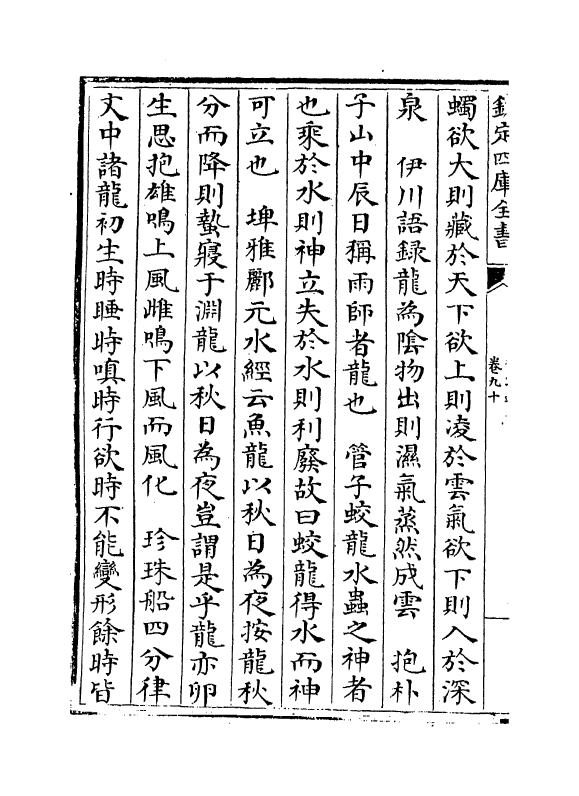 欽定四庫全書
卷九十
蠋欲大則藏於天下欲上則凌於雲氣欲下則入於深
泉　伊川語録龍為陰物出則濕氣蒸然成雲　抱朴
子山中辰日稱雨師者龍也　管子蛟龍水蟲之神者
也乘於水則神立失於水則利廢故曰蛟龍得水而神
可立也　埤雅酈元水經云魚龍以秋日為夜按龍秋
分而降則蟄寢于淵龍以秋日為夜豈謂是乎龍亦卵
生思抱雄鳴上風雌鳴下風而風化　珍珠船四分律
文中諸龍初生時睡時嗔時行欲時不能變形餘時皆